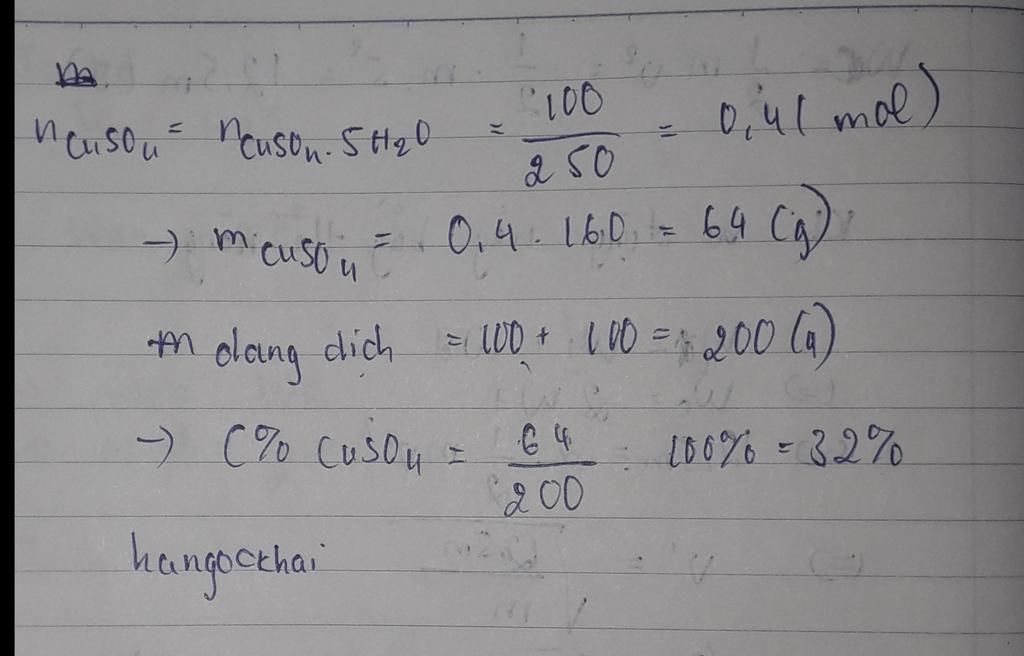 n CuSO4 = n CuSO4.5H2O = 100/250 = 0,4 ( mol )
→ m CuSO4 = 0,4 . 160 = 64 (g)
m dung dịch = 100 + 100 = 200 (g)
→ C% CuSO4 = 64/200 . 100% = 32%
hangockhai